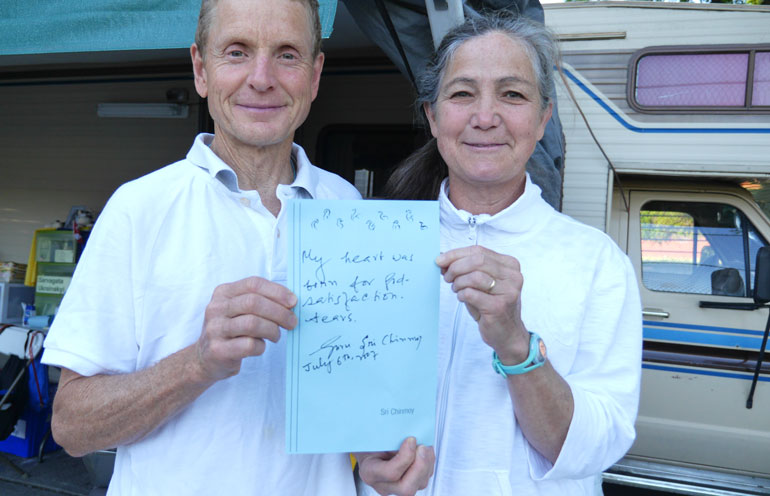 My heart was
born for God-
satisfaction-
tears.
Sri Chinmoy
July 6th, 2007
Sri Chinmoy